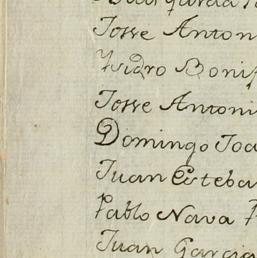 Josse Anton
Ysidro Bonif
Josse Antoni
Domingo Joa
Juan Esteba
Pablo Nava
Juan Garcia